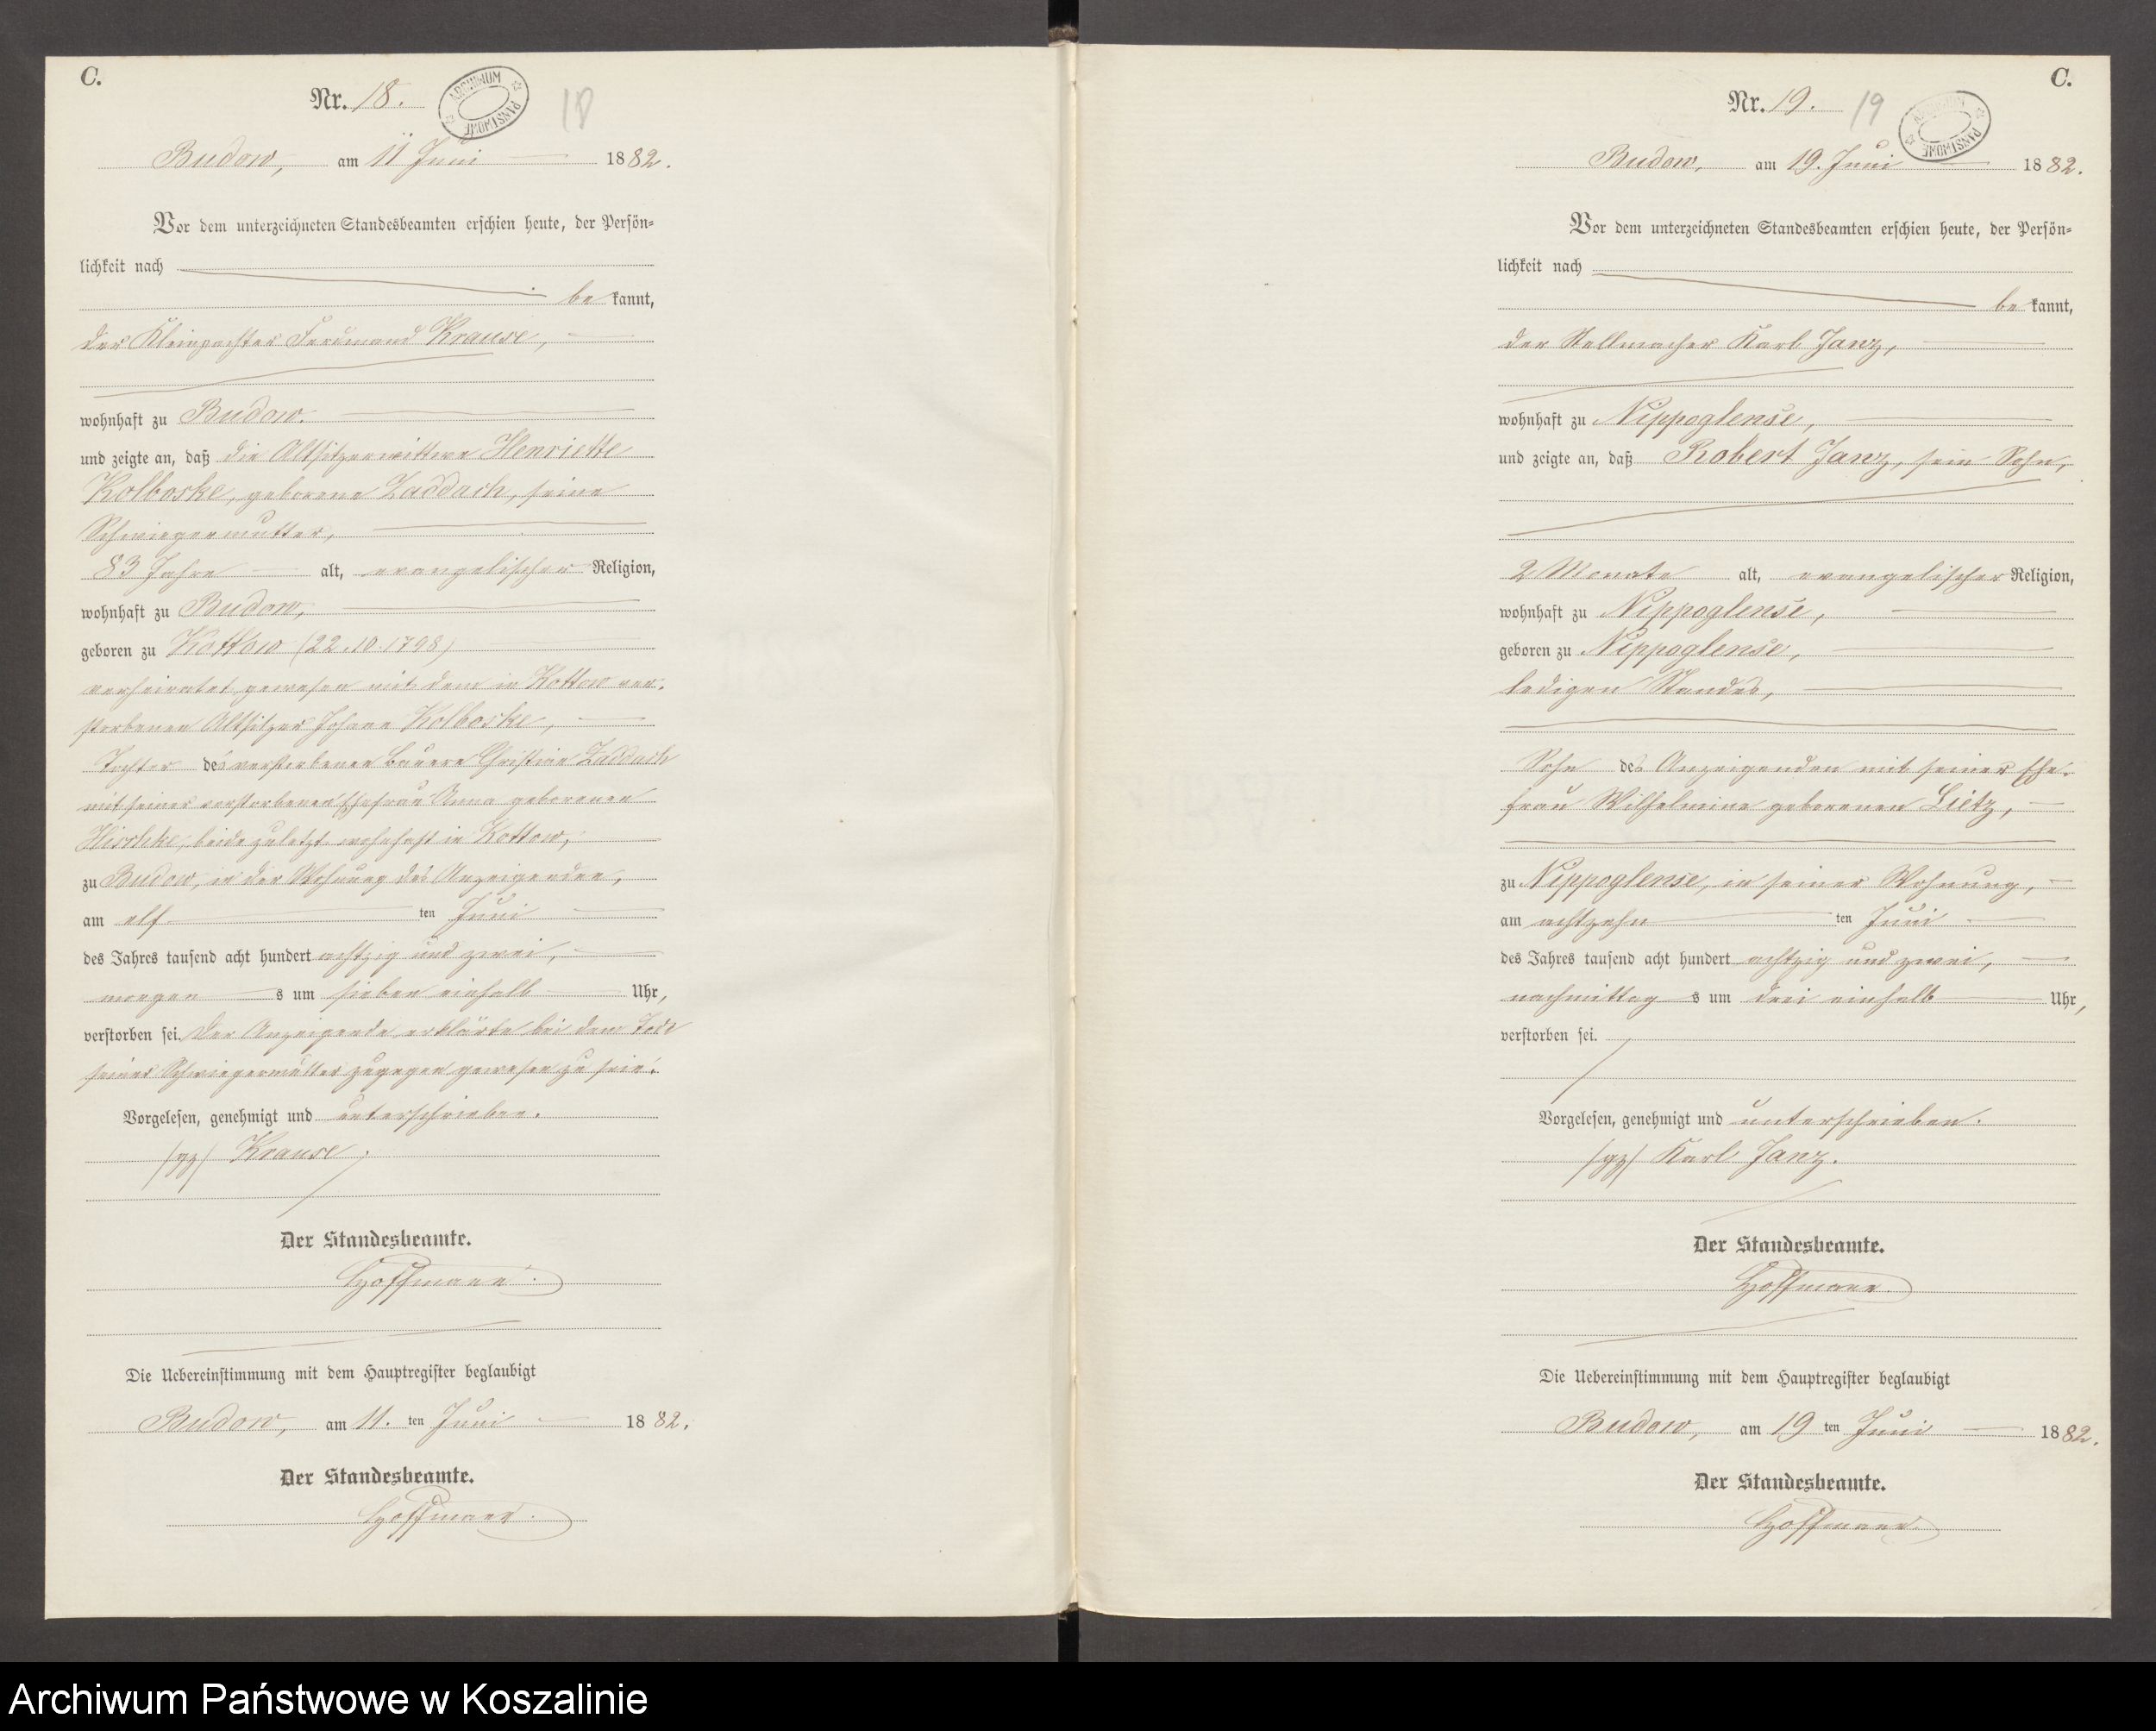 C.
Nr. 18.
ARCHIWUM PAŃSTWOWE
18
Budow, am 11 Juni 1882.
Vor dem unterzeichneten Standesbeamten erschien heute, der Persön-
lichkeit nach
be kannt,
der Kleinpachter Ferdinand Krause,
wohnhaft zu Budow.
und zeigte an, daß die Altsitzerwittwe Henriette
Kolboske, geborene Zaddach, seine
Schwiegermutter,
83 Jahre alt, evangelischer Religion,
wohnhaft zu Budow,
geboren zu Kottow (22.10.1798)
verheiratet gewesen mit dem in Kottow ver-
storbenen Altsitzer Johann Kolboske,
Tochter des verstorbenen Bauern Christian Zaddach
mit seiner verstorbenen Ehefrau Anna geborenen
beide zuletzt wohnhaft in Kottow,
zu Budow, in der Wohnung des Anzeigenden,
am elf ten Juni
des Jahres tausend acht hundert achtzig und zwei,
morgen s um sieben einhalb Uhr,
verstorben sei. Der Anzeigende erklärte bei dem Tode
seiner Schwiegermutter zugegen gewesen zu sein.
Vorgelesen, genehmigt und unterschrieben.
/gz/ Krause.
Der Standesbeamte.
Hoffmann.
Die Uebereinstimmung mit dem Hauptregister beglaubigt
Budow, am 11. ten Juni 1882.
Der Standesbeamte.
Hoffmann.
C.
Nr. 19.
19
ARCHIWUM PAŃSTWOWE
Budow, am 19. Juni 1882.
Vor dem unterzeichneten Standesbeamten erschien heute, der Persön-
lichkeit nach
be kannt,
der Stellmacher Karl Janz,
wohnhaft zu Nippoglense,
und zeigte an, daß Robert Janz, sein Sohn,
2 Monate alt, evangelischer Religion,
wohnhaft zu Nippoglense,
geboren zu Nippoglense,
ledigen Standes,
Sohn des Anzeigenden mit seiner Ehe-
frau Wilhelmine geborenen Lietz,
zu Nippoglense, in seiner Wohnung,
am achtzehn ten Juni
des Jahres tausend acht hundert achtzig und zwei,
nachmittag s um drei einhalb Uhr,
verstorben sei.
Vorgelesen, genehmigt und unterschrieben.
/gz/ Karl Janz.
Der Standesbeamte.
Hoffmann.
Die Uebereinstimmung mit dem Hauptregister beglaubigt
Budow, am 19 ten Juni 1882.
Der Standesbeamte.
Hoffmann.
Archiwum Państwowe w Koszalinie